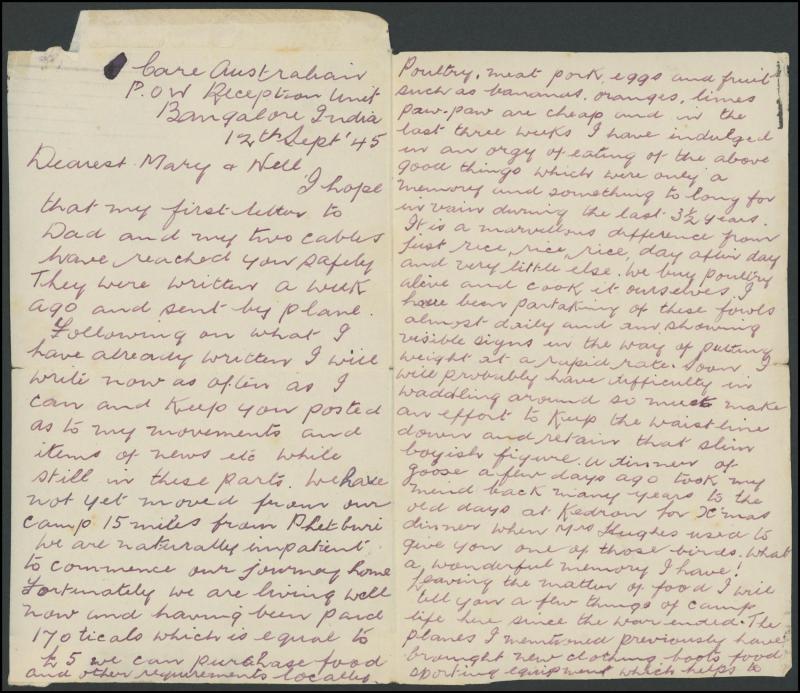 Care Australian
P.O.W Reception Unit
Bangalore India
12th Sept '45
Dearest Mary & Nell,
I hope
that my first letter to
Dad and my two cables
have reached you safely
They were written a week
ago and sent by plane.
Following on what I
have already written I will
write now as often as I
can and keep you posted
as to my movements and
items of news etc while
still in these parts. We have
not yet moved from our
camp 15 miles from Phetburi
We are naturally impatient
to commence our journey home
Fortunately we are living well
now and having been paid
170 ticals which is equal to
5 we can purchase food
and other requirements locally.
Poultry, meat pork, eggs and fruit
such as bananas, oranges, limes
paw-paw are cheap and in the
last three weeks I have indulged
in an orgy of eating of the above
good things which were only a
memory and something to long for
in vain during the last 3½ years.
It is a marvellous difference from
just rice, rice, rice, day after day
and very little else. We buy poultry
alive and cook it ourselves. I
have been partaking of these fowls
almost daily and am showing
visible signs in the way of putting
weight at a rapid rate. Soon I
will probably have difficulty in
waddling around so must make
an effort to keep the waistline
down and retain that slim
boyish figure. A dinner of
goose a few days ago took my
mind back many years to the
old days at Kedron for X'mas
dinner when Mrs Hughes used to
give you one of those birds. What
a wonderful memory I have!
Leaving the matter of food I will
tell you a few things of camp
life here since the war ended. The
planes I mentioned previously have
brought new clothing boots food
sporting equipment which helps to